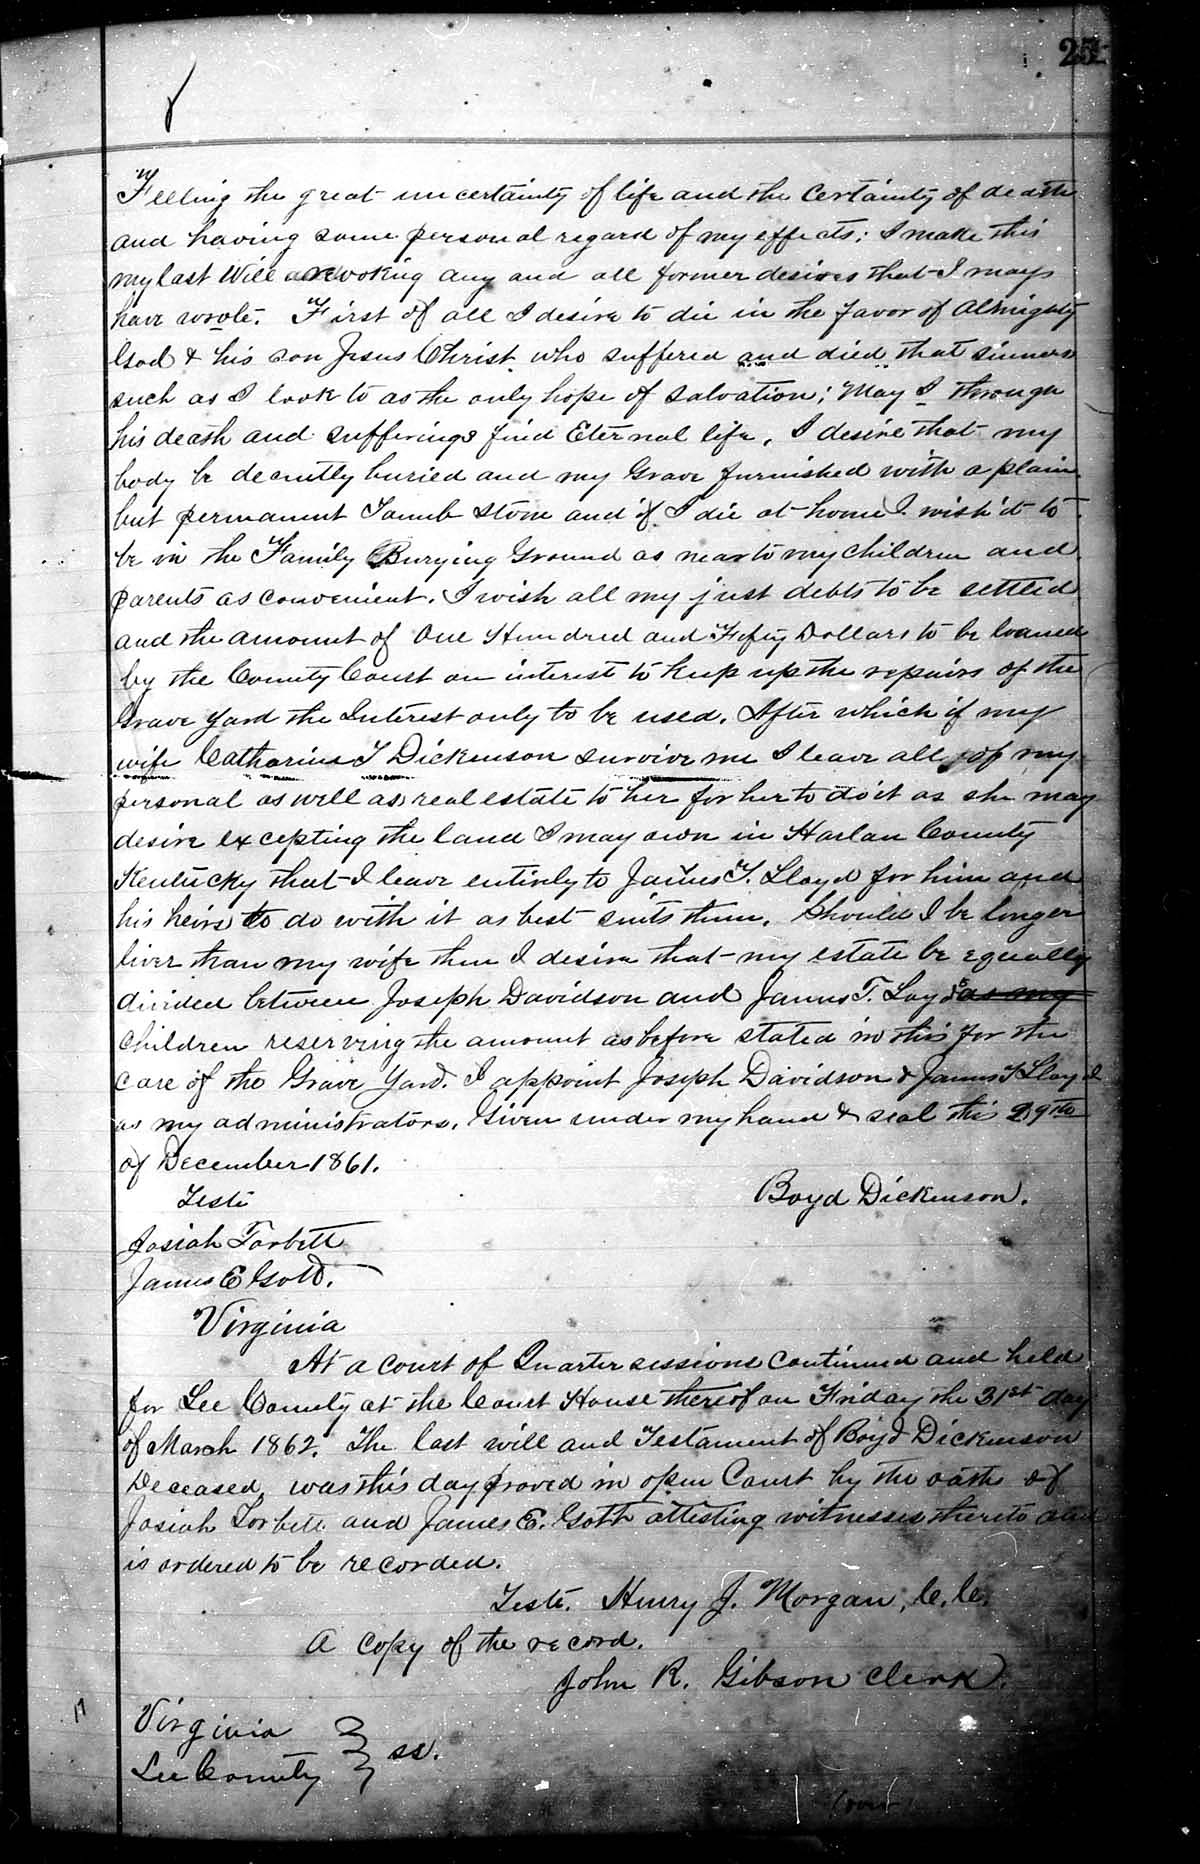 25
Feeling the great uncertainty of life and the Certainty of death
and having some personal regard of my effects; I make this
my last Will revoking any and all former desires that I may
have wrote. First of all I desire to die in the favor of Almighty
God & his son Jesus Christ who suffered and died that sinners
such as I look to as the only hope of salvation; May I through
his death and sufferings find Eternal life, I desire that my
body be decently buried and my Grave furnished with a plain
but permanent Tomb stone and if I die at home I wish it to
be in the Family Burying Ground as near to my Children and
parents as convenient. I wish all my just debts to be settled
and the amount of One Hundred and Fifty Dollars to be loaned
by the County Court on interest to keep up the repairs of the
Grave Yard the Interest only to be used. After which if my
wife Catharine T Dickenson survive me I leave all of my
personal as well as real estate to her for her to do it as she may
desire excepting the land I may own in Harlan County
Kentucky that I leave entirely to James T. Lloyd for him and
his heirs to do with it as best suits them. Should I be longer
liver than my wife then I desire that my estate be equally
divided between Joseph Davidson and James T. Loyd as my
Children reserving the amount as before stated in this for the
care of the Grave Yard. I appoint Joseph Davidson & James T Lloyd
as my administrators. Given under my hand & seal this 29th
of December 1861.
Teste
Boyd Dickenson.
Josiah Torbett
James E Gott.
Virginia
At a court of Quarter sessions Continued and held
for Lee County at the Court House thereof on Friday the 31st day
of March 1862. The last will and Testament of Boyd Dickenson
Deceased, was this day proved in open Court by the oaths of
Josiah Torbett and James E. Gott attesting witnesses thereto and
is ordered to be recorded.
Teste. Henry J. Morgan, C. C.
A Copy of the record.
John R. Gibson Clerk.
Virginia
Lee County } ss.